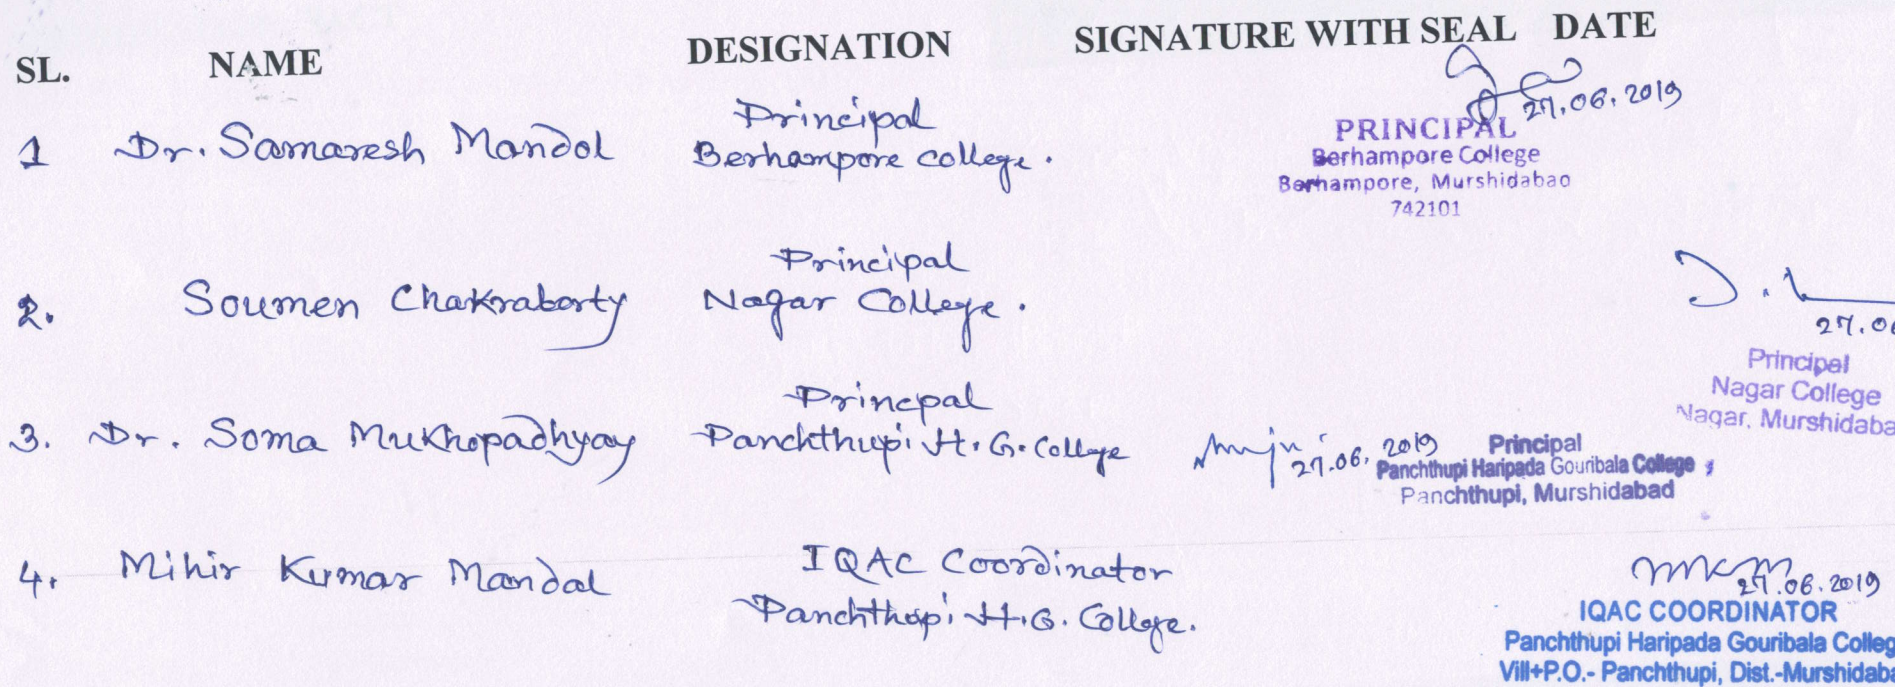 SL. NAME DESIGNATION SIGNATURE WITH SEAL DATE
1 Dr. Samaresh Mandol Principal
Berhampore college.
27.06.2019
PRINCIPAL
Berhampore College
Berhampore, Murshidabad
742101
2. Soumen Chakraborty Principal
Nagar College.
27.06
Principal
Nagar College
Nagar, Murshidaba
3. Dr. Soma Mukhopadhyay Princpal
Panchthupi H.G. College
27.06.2019
Principal
Panchthupi Haripada Gouribala College
Panchthupi, Murshidabad
4. Mihir Kumar Mandal IQAC Coordinator
Panchthupi H.G. College.
MKM
27.06.2019
IQAC COORDINATOR
Panchthupi Haripada Gouribala Colleg
Vill+P.O.- Panchthupi, Dist.-Murshidaba